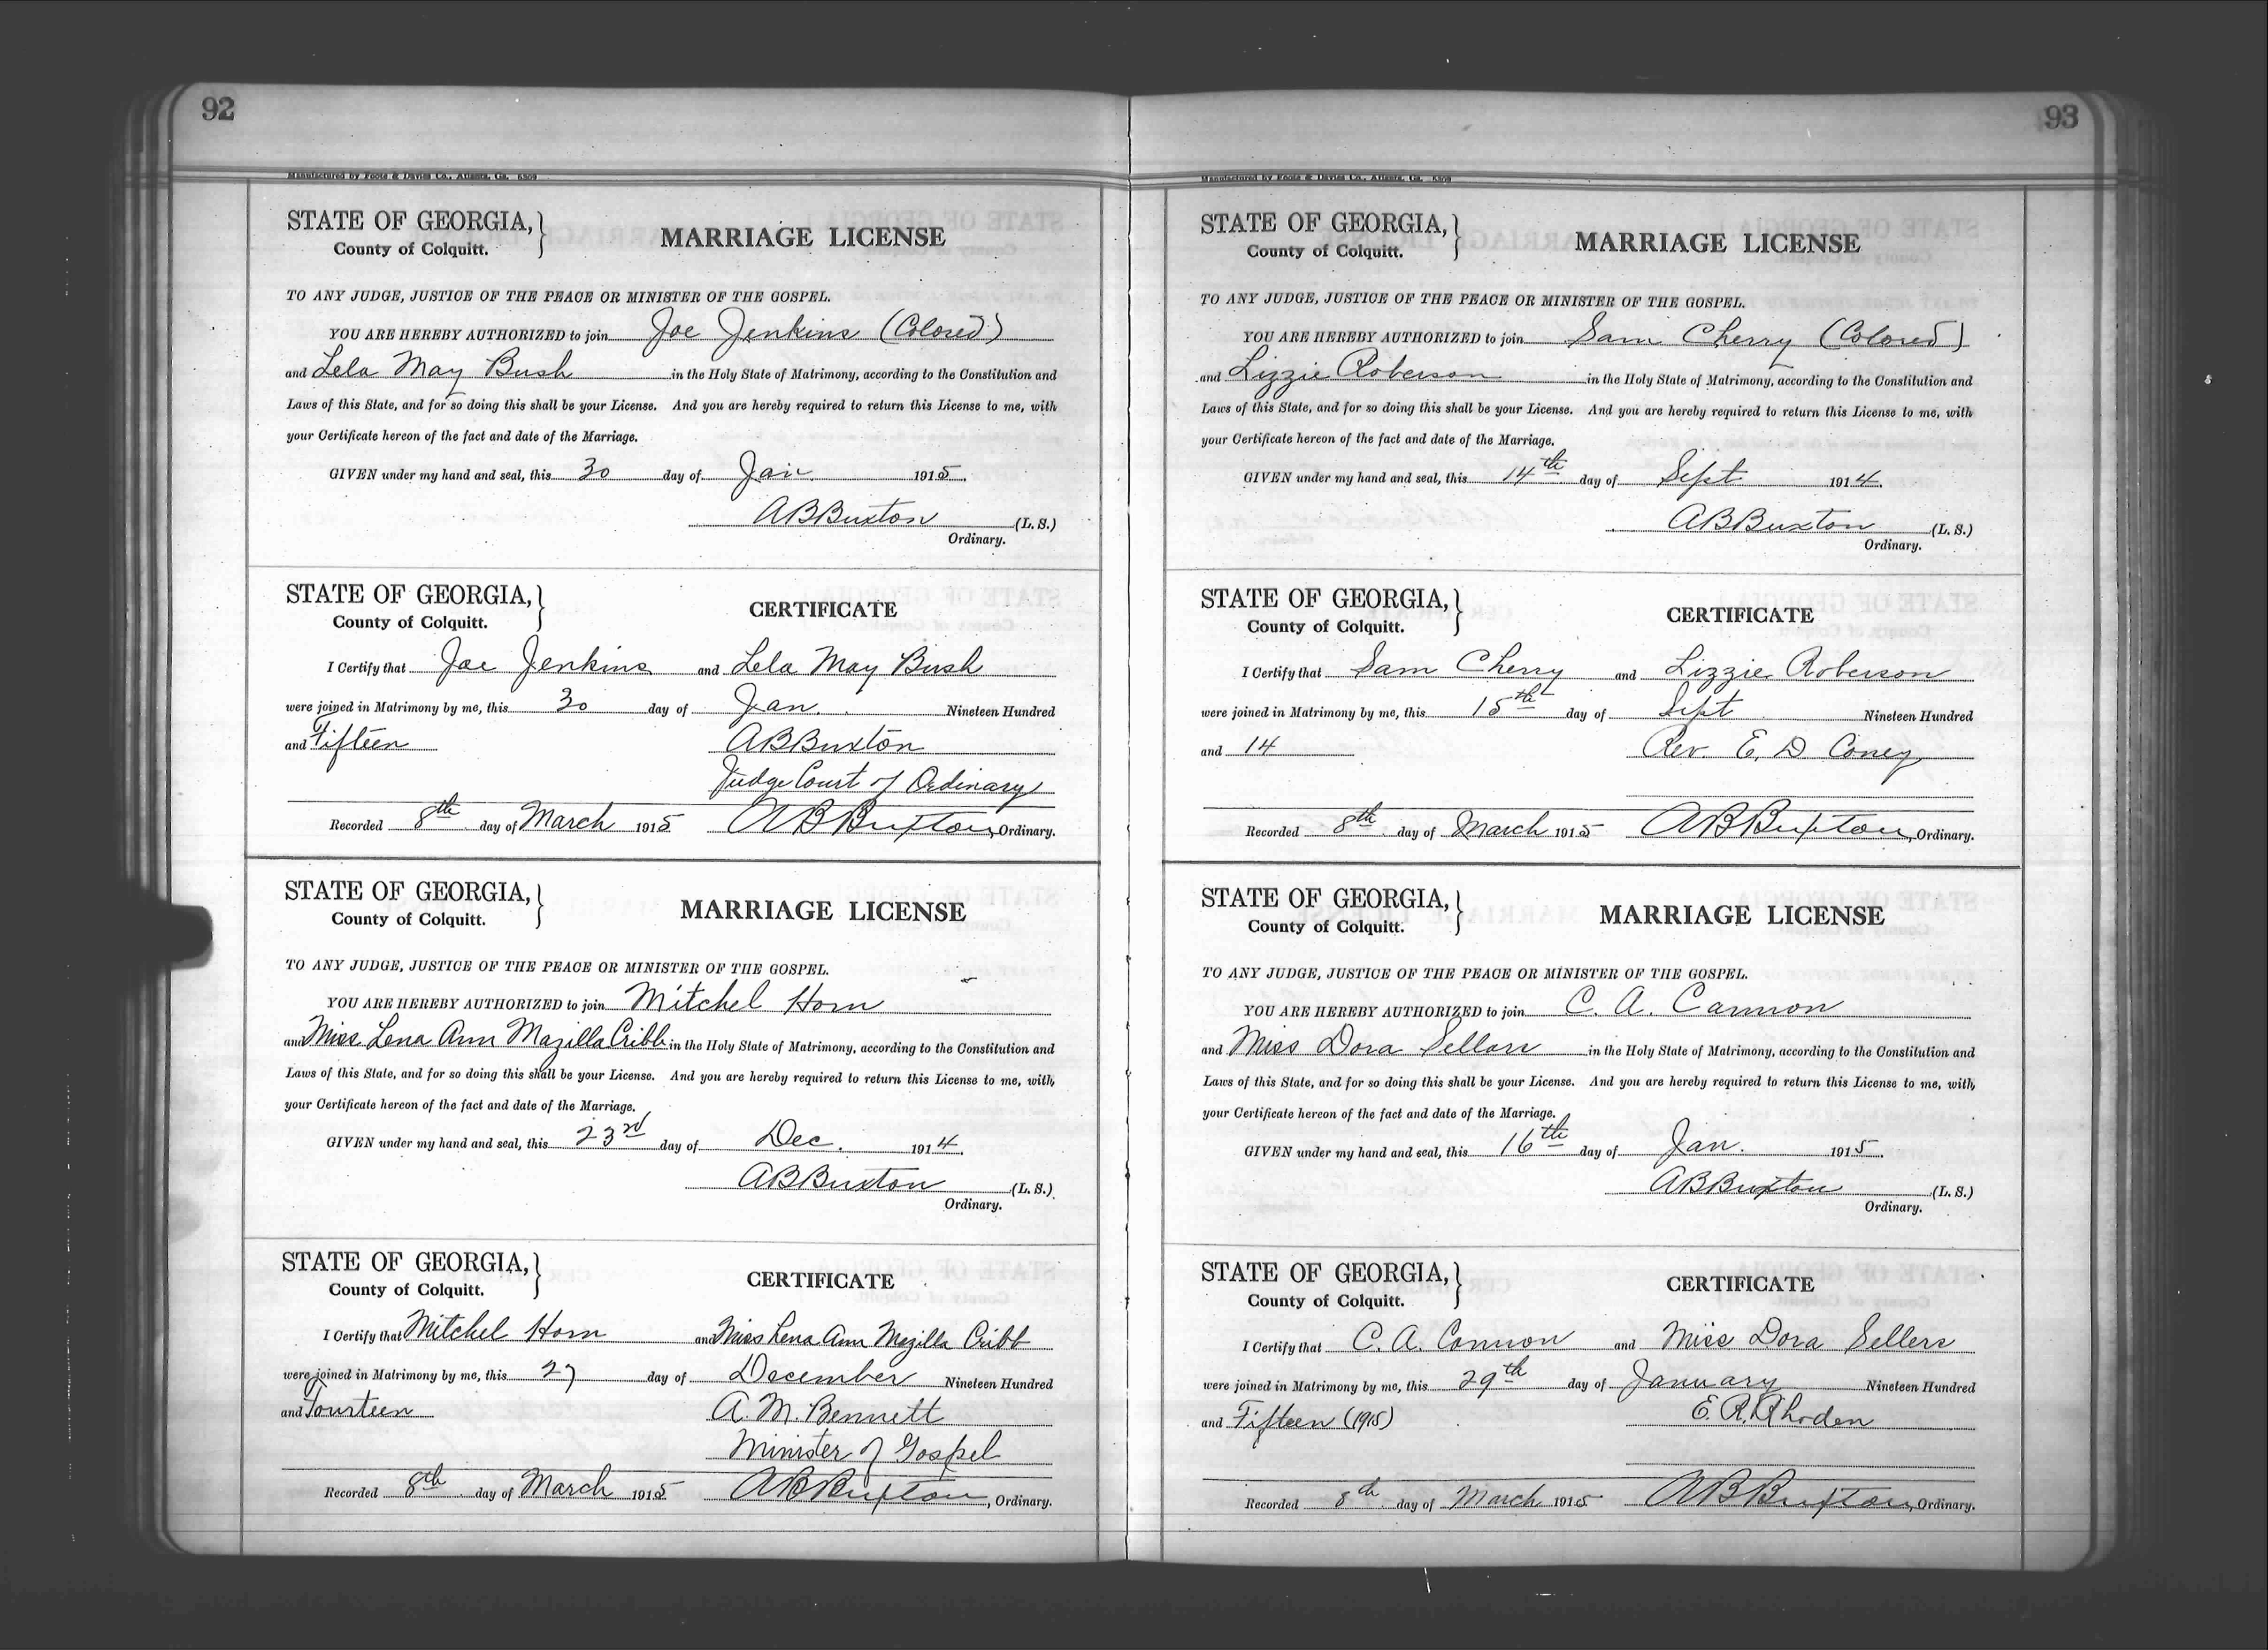 92
Manufactured by Foote & Davies Co., Atlanta, Ga.
STATE OF GEORGIA,
County of Colquitt.
MARRIAGE LICENSE
TO ANY JUDGE, JUSTICE OF THE PEACE OR MINISTER OF THE GOSPEL.
YOU ARE HEREBY AUTHORIZED to join Joe Jenkins (Colored)
and Lela May Bush in the Holy State of Matrimony, according to the Constitution and
Laws of this State, and for so doing this shall be your License. And you are hereby required to return this License to me, with
your Certificate hereon of the fact and date of the Marriage.
GIVEN under my hand and seal, this 30 day of Jan. 1915.
A B Buxton (L. S.)
Ordinary.
STATE OF GEORGIA,
County of Colquitt.
CERTIFICATE
I Certify that Joe Jenkins and Lela May Bush
were joined in Matrimony by me, this 30 day of Jan. Nineteen Hundred
and Fifteen A B Buxton
Judge Court of Ordinary
Recorded 8th day of March 1915 A B Buxton, Ordinary.
STATE OF GEORGIA,
County of Colquitt.
MARRIAGE LICENSE
TO ANY JUDGE, JUSTICE OF THE PEACE OR MINISTER OF THE GOSPEL.
YOU ARE HEREBY AUTHORIZED to join Mitchel Horn
and Miss Lena Ann Mazilla Cribb in the Holy State of Matrimony, according to the Constitution and
Laws of this State, and for so doing this shall be your License. And you are hereby required to return this License to me, with
your Certificate hereon of the fact and date of the Marriage.
GIVEN under my hand and seal, this 23rd day of Dec. 1914.
A B Buxton (L. S.)
Ordinary.
STATE OF GEORGIA,
County of Colquitt.
CERTIFICATE
I Certify that Mitchel Horn and Miss Lena Ann Mazilla Cribb
were joined in Matrimony by me, this 27 day of December Nineteen Hundred
and Fourteen A. M. Bennett
Minister of Gospel
Recorded 8th day of March 1915 A B Buxton, Ordinary.
93
Manufactured by Foote & Davies Co., Atlanta, Ga.
STATE OF GEORGIA,
County of Colquitt.
MARRIAGE LICENSE
TO ANY JUDGE, JUSTICE OF THE PEACE OR MINISTER OF THE GOSPEL.
YOU ARE HEREBY AUTHORIZED to join Sam Cherry (Colored)
and Lizzie Roberson in the Holy State of Matrimony, according to the Constitution and
Laws of this State, and for so doing this shall be your License. And you are hereby required to return this License to me, with
your Certificate hereon of the fact and date of the Marriage.
GIVEN under my hand and seal, this 14th day of Sept 1914.
A B Buxton (L. S.)
Ordinary.
STATE OF GEORGIA,
County of Colquitt.
CERTIFICATE
I Certify that Sam Cherry and Lizzie Roberson
were joined in Matrimony by me, this 15th day of Sept Nineteen Hundred
and 14 Rev. E. D Coney
Recorded 8th day of March 1915 A B Buxton, Ordinary.
STATE OF GEORGIA,
County of Colquitt.
MARRIAGE LICENSE
TO ANY JUDGE, JUSTICE OF THE PEACE OR MINISTER OF THE GOSPEL.
YOU ARE HEREBY AUTHORIZED to join C. A. Cannon
and Miss Dora Sellars in the Holy State of Matrimony, according to the Constitution and
Laws of this State, and for so doing this shall be your License. And you are hereby required to return this License to me, with
your Certificate hereon of the fact and date of the Marriage.
GIVEN under my hand and seal, this 16th day of Jan. 1915.
A B Buxton (L. S.)
Ordinary.
STATE OF GEORGIA,
County of Colquitt.
CERTIFICATE
I Certify that C. A. Cannon and Miss Dora Sellers
were joined in Matrimony by me, this 29th day of January Nineteen Hundred
and Fifteen (1915) E. R. Rhoden
Recorded 8th day of March 1915 A B Buxton, Ordinary.